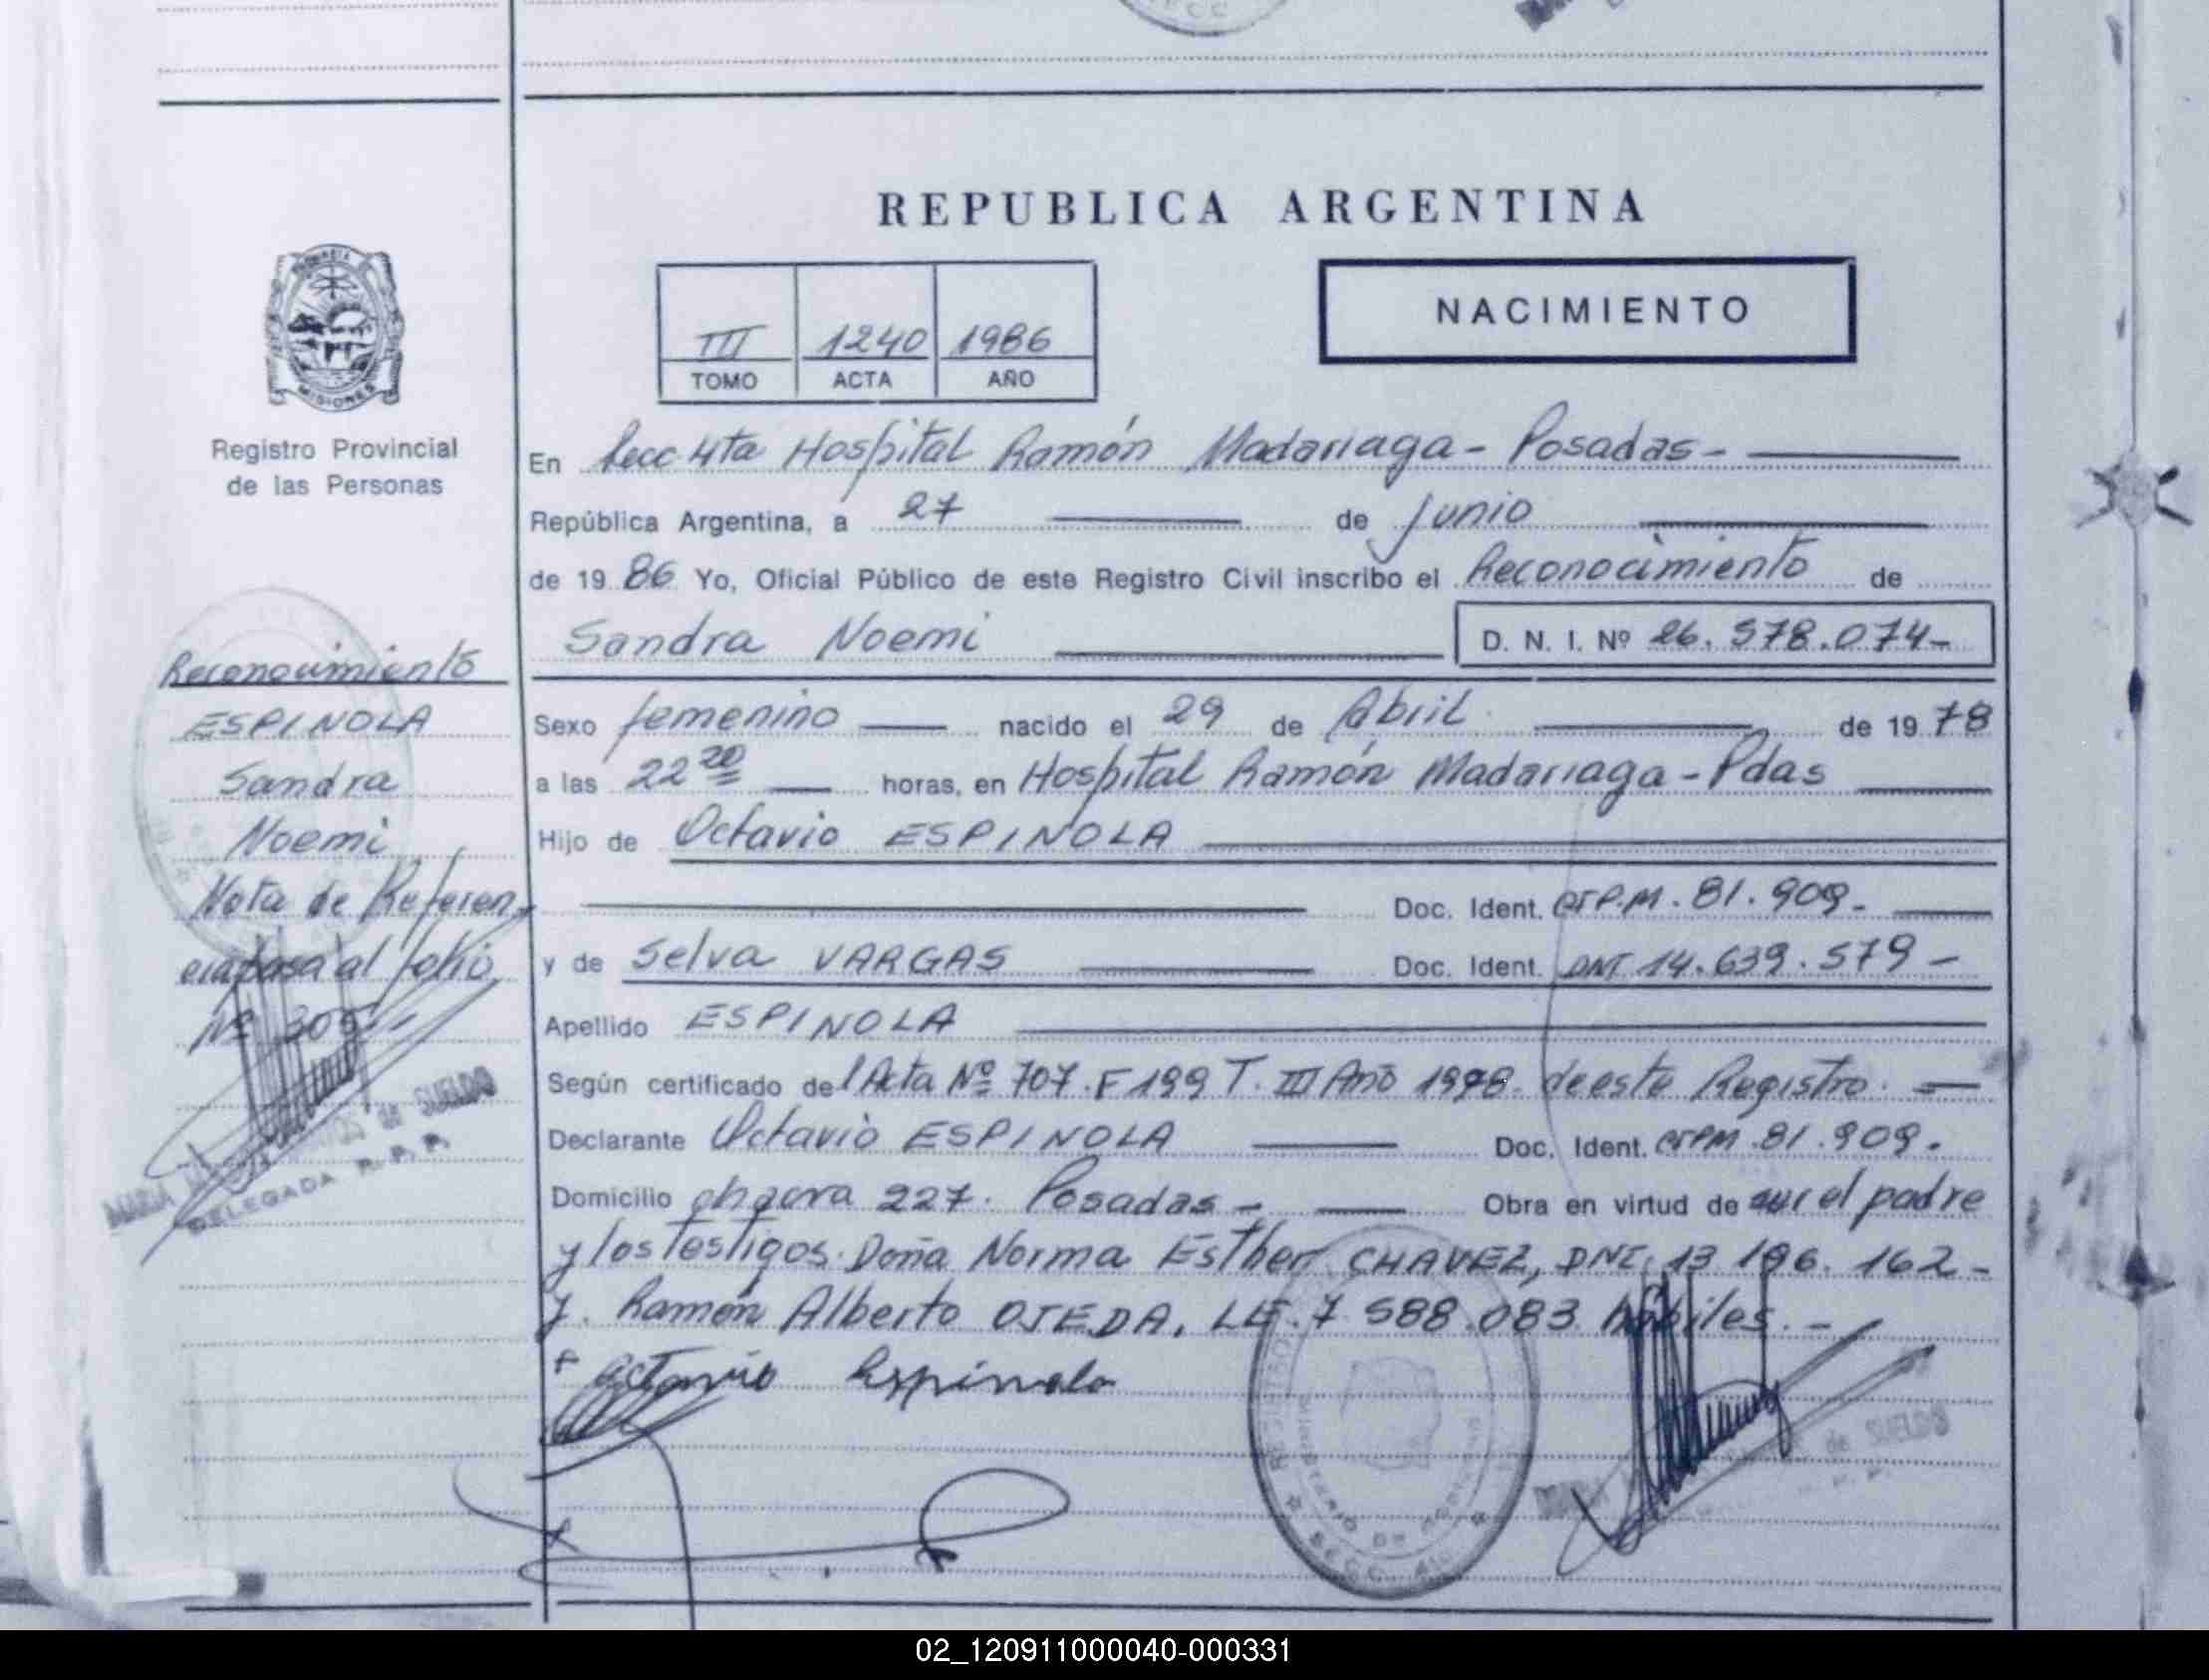 REPUBLICA ARGENTINA
NACIMIENTO
III 1240 1986
TOMO ACTA AÑO
MISIONES
Registro Provincial
de las Personas
Reconocimiento
ESPINOLA
Sandra
Noemi
Nota de Referen
cia pasa al folio
Nº 305
de SUELDO
DELEGADA R. P. P.
En Secc 4ta Hospital Ramón Madariaga - Posadas -
República Argentina, a 27 de Junio
de 19 86 Yo, Oficial Público de este Registro Civil inscribo el Reconocimiento de
Sandra Noemi D. N. I. Nº 26.578.074-
Sexo femenino nacido el 29 de Abril de 19 78
a las 22 20 horas, en Hospital Ramón Madariaga - Pdas
Hijo de Octavio ESPINOLA
Doc. Ident. 81.909-
y de Selva VARGAS Doc. Ident. DNI 14.639.579-
Apellido ESPINOLA
Según certificado del Acta Nº 707. F 199 T. III Año 1978. de este Registro.
Declarante Octavio ESPINOLA Doc. Ident. 81.909.
Domicilio chacra 227. Posadas - Obra en virtud de ser el padre
y los testigos. Doña Norma Esther CHAVEZ, DNI. 13 196. 162-
y. Ramón Alberto OJEDA, LE. 7 588.083 hábiles. -
Octavio Espinola
de SUELDO
02_120911000040-000331